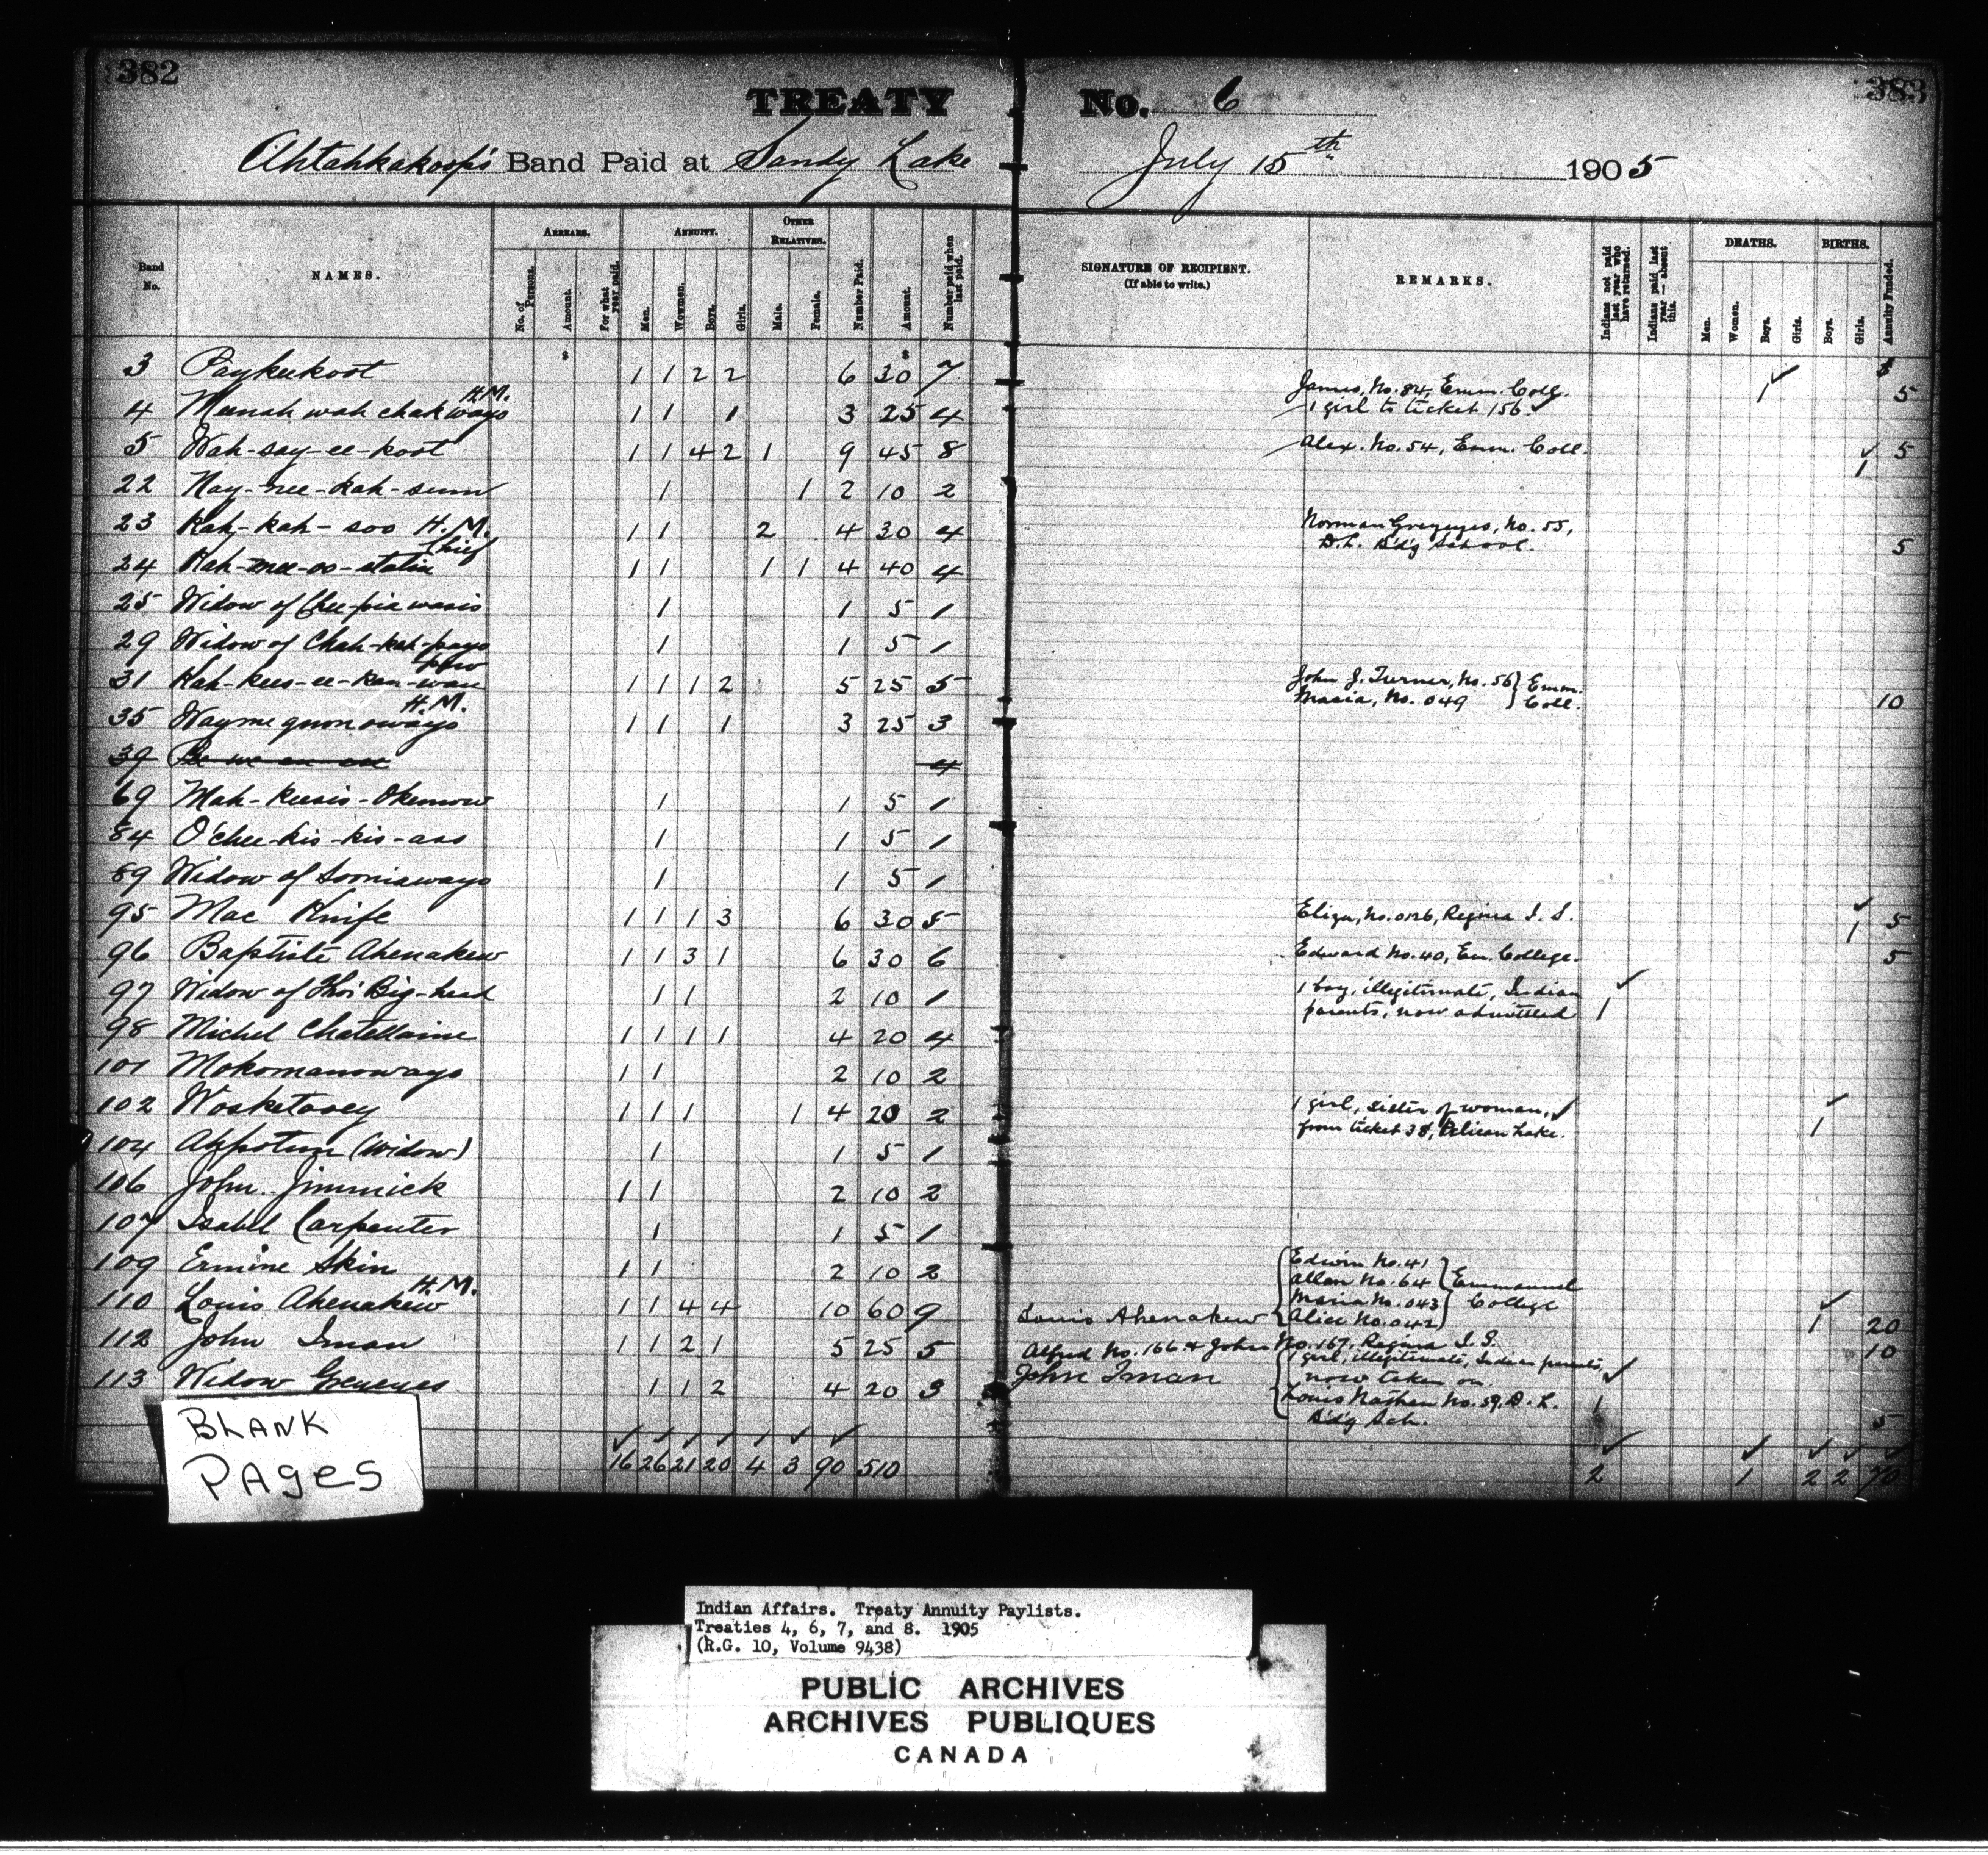 382
TREATY No. 6
383
Ahtahkakoop's Band Paid at Sandy Lake July 15th 1905
Band No. NAMES. ARREARS. No. of Persons. Amount. For what year paid. ANNUITY. Men. Women. Boys. Girls. OTHER RELATIVES. Male. Female. Number Paid. Amount. Number paid when last paid.
SIGNATURE OF RECIPIENT. (If able to write.) REMARKS. Indians not paid last year who have returned. Indians paid last year — absent this. DEATHS. Men. Women. Boys. Girls. BIRTHS. Boys. Girls. Annuity Funded.
$ $ $
3 Paykeekoot 1 1 2 2 6 30 7 James, No. 84, Emm. Coll. 1 ✓ 5
1 girl to ticket 156 ✓
4 Meenah wah chak wayo H.M. 1 1 1 3 25 4
5 Wah-say-ee-koot 1 1 4 2 1 9 45 8 Alex. No. 54, Emm. Coll. ✓ 1 5
22 Nay-nee-kah-sum 1 1 2 10 2
23 Kah-kah-soo H.M. 1 1 2 4 30 4 Norman Greyeyes, No. 55,
D.L. B'd'g School. 5
24 Kah-mee-oo-statin Chief 1 1 1 1 4 40 4
25 Widow of Chee-pia wasis 1 1 5 1
29 Widow of Chah-kah-payo 1 1 5 1
31 Kah-kees-ee-kan-waw 1 1 1 2 5 25 5 John J. Turner, No. 56 } Emm.
Maria, No. 049 } Coll. 10
35 Wayme quon owayo H.M. 1 1 1 3 25 3
39 4
69 Mah-keesis-Okemow 1 1 5 1
84 O'chee-kis-kis-ass 1 1 5 1
89 Widow of Sooniawayo 1 1 5 1
95 Mac Knife 1 1 1 3 6 30 5 Eliza, No. 0126, Regina I. S. ✓ 1 5
96 Baptiste Ahenakew 1 1 3 1 6 30 6 Edward No. 40, Em. College. 5
97 Widow of Thos Big-head 1 1 2 10 1 1 boy, illegitimate, Indian ✓
parents, now admitted 1
98 Michel Chatellaine 1 1 1 1 4 20 4
101 Mokomanowayo 1 1 2 10 2
102 Wosketasey 1 1 1 1 4 20 2 1 girl, sister of woman, ✓ ✓
from ticket 38, Pelican Lake. 1
104 Appotum (Widow) 1 1 5 1
106 John Jimmick 1 1 2 10 2
107 Isabel Carpenter 1 1 5 1
109 Ermine Skin 1 1 2 10 2
Edwin No. 41
Allan No. 64 } Emmanuel
Maria No. 043 College
110 Louis Ahenakew H.M. 1 1 4 4 10 60 9 Louis Ahenakew Alice No. 042 ✓ 1 20
112 John Iman 1 1 2 1 5 25 5 Alfred No. 166 & John No. 167, Regina I. S. 10
John Iman
113 Widow Greyeyes 1 1 2 4 20 3 1 girl, illegitimate, Indian parents, ✓
now taken on. 1
Louis Nathan No. 59, D. L.
B'd'g Sch. 5
✓ ✓ ✓ ✓ ✓ ✓ ✓ ✓ ✓ ✓ ✓ ✓
16 26 21 20 4 3 90 510 2 1 2 2 70
BLANK
PAGES
Indian Affairs. Treaty Annuity Paylists.
Treaties 4, 6, 7, and 8. 1905
(R.G. 10, Volume 9438)
PUBLIC ARCHIVES
ARCHIVES PUBLIQUES
CANADA